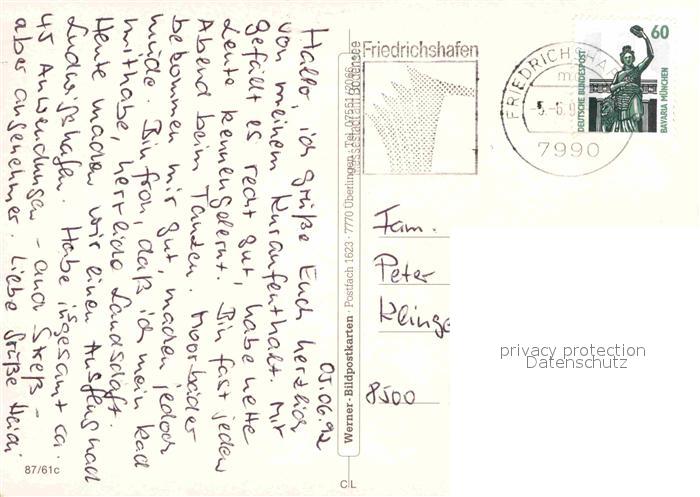 05.06.92
Hallo, ich grüße Euch herzlich
von meinem Kuraufenthalt. Mir
gefällt es recht gut, habe nette
Leute kennengelernt. Bin fast jeden
Abend beim Tanzen. Moorbäder
bekommen mir gut, machen jedoch
müde. Bin froh, daß ich mein Rad
mithabe, herrliche Landschaft.
Heute machen wir einen Ausflug nach
Ludwigshafen. Habe insgesamt ca.
45 Anwendungen - auch Streß -
aber angenehmer. Liebe Grüße Heidi
87/61c
Werner-Bildpostkarten · Postfach 1623 · 7770 Überlingen · Tel. 07551/62066
CL
Friedrichshafen
Messestadt am Bodensee
FRIEDRICHSHA
5.-6.9
7990
60
DEUTSCHE BUNDESPOST
BAVARIA MÜNCHEN
Fam.
Peter
Klinge
8500
privacy protection
Datenschutz